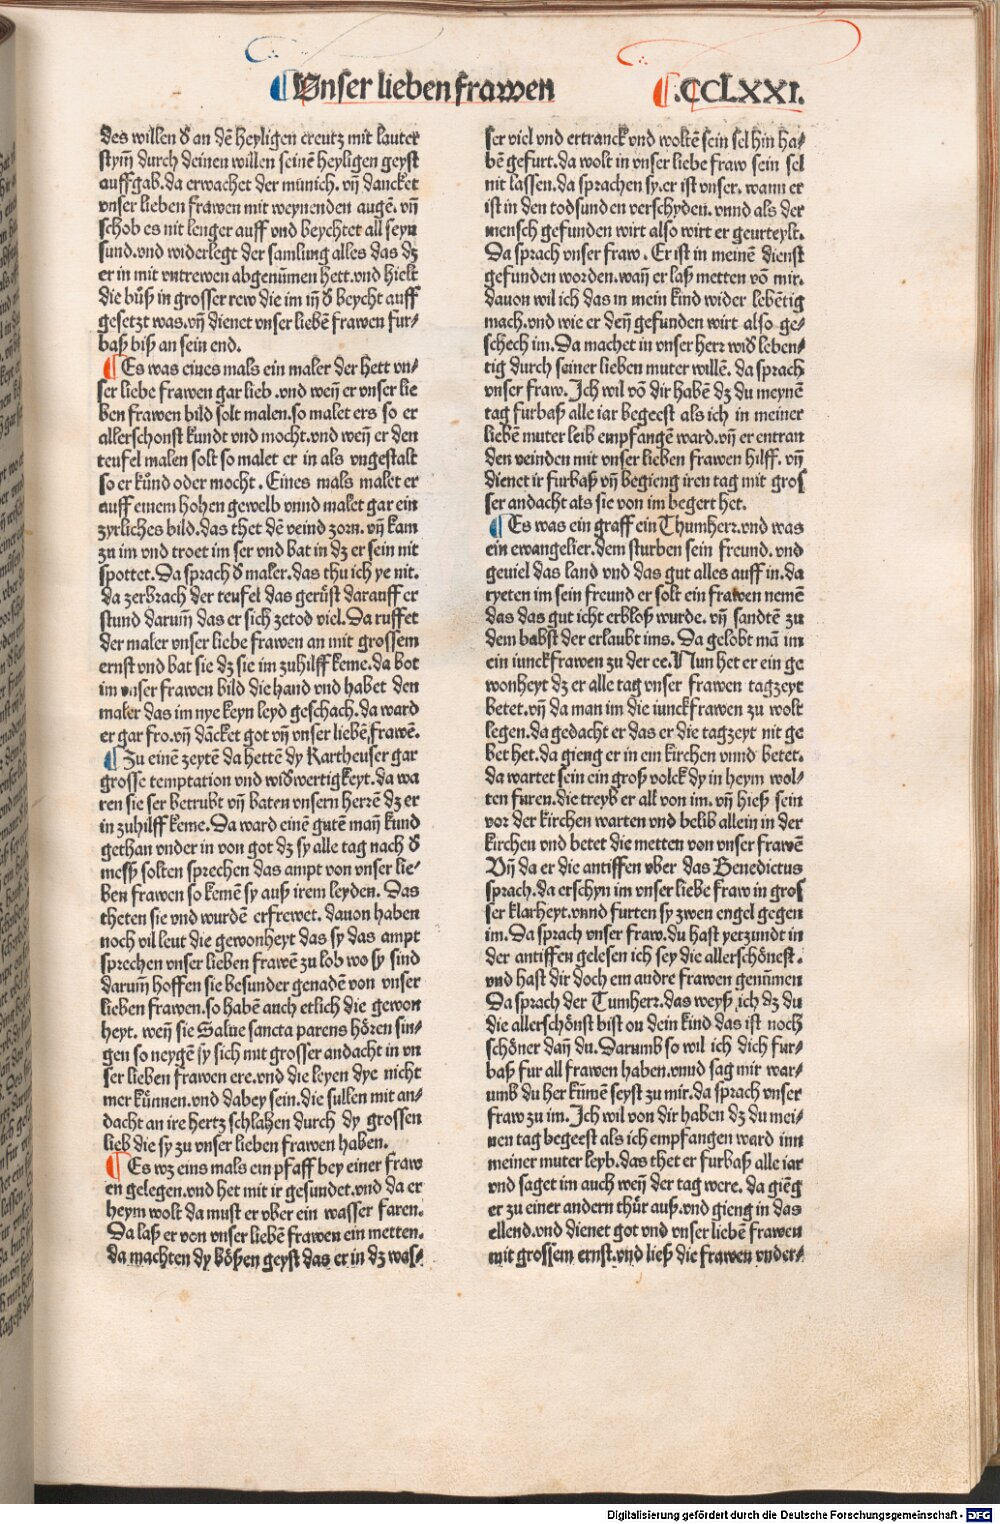 ¶Unser lieben frawen ¶.CCLXXI.
des willen ď an dē heyligen creutz mit lauter
stym̄ durch deinen willen seinē heyligen geyst
auffgab. da erwachet der münich. vn̄ dancket
vnser lieben frawen mit weynenden augē. vn̄
schob es nit lenger auff vnd beychtet all seyn
sund. vnd widerlegt der samlung alles das dz
er in mit vntrewen abgenūmen hett. vnd hielt
die bůß in grosser rew die im in̄ ď beycht auff
gesetzt was. vn̄ dienet vnser liebē frawen fur-
baß biß an sein end.
¶Es was eines mals ein maler der hett vn-
ser liebe frawen gar lieb. vnd wen̄ er vnser lie
ben frawen bild solt malen. so malet ers so er
allerschonst kundt vnd mocht. vnd wen̄ er den
teufel malen solt so malet er in als vngestalt
so er kůnd oder mocht. Eines mals malet er
auff einem hohen gewelb vnnd malet gar ein
zyrliches bild. das thet dē veind zorn. vn̄ kam
zu im vnd troet im ser vnd bat in dz er sein nit
spottet. Da sprach ď maler. das thu ich ye nit.
da zerbrach der teufel das gerüst darauff er
stund darum̄ das er sich zetod viel. Da ruffet
der maler vnser liebe frawen an mit grossem
ernst vnd bat sie dz sie im zuhilff keme. da bot
im vnser frawen bild die hand vnd habet den
maler das im nye keyn leyd geschach. da ward
er gar fro. vn̄ dācket got vn̄ vnser liebē frawē.
¶Zu einē zeytē da hettē dy Kartheuser gar
grosse temptation vnd wiďwertigkeyt. da wa
ren sie ser betrubt vn̄ baten vnsern herrē dz er
in zuhilff keme. Da ward einē gutē man̄ kund
gethan vnder in von got dz sy alle tag nach ď
mesß solten sprechen das ampt von vnser lie-
ben frawen so kemē sy auß irem leyden. Das
theten sie vnd wurdē erfrewet. dauon haben
noch vil leut die gewonheyt das sy das ampt
sprechen vnser lieben frawē zu lob wo sy sind
darum̄ hoffen sie besunder genadē von vnser
lieben frawen. so habē auch etlich die gewon
heyt. wen̄ sie Salue sancta parens hören sin-
gen so neygē sy sich mit grosser andacht in vn
ser lieben frawen ere. vnd die leyen dye nicht
mer künnen. vnd dabey sein. die sullen mit an-
dacht an ire hertz schlahen durch dy grossen
lieb die sy zu vnser lieben frawen haben.
¶Es wz eins mals ein pfaff bey einer fraw
en gelegen. vnd het mit ir gesundet. vnd da er
heym wolt da must er vber ein wasser faren.
Da laß er von vnser liebē frawen ein metten.
da machten dy bößen geyst das er in dz was-
ser viel vnd ertranck vnd woltē sein sel hin ha-
bē gefurt. da wolt in vnser liebe fraw sein sel
nit lassen. da sprachen sy. er ist vnser. wann er
ist in den todsunden verschyden. vnnd als der
mensch gefunden wirt also wirt er geurteylt.
Da sprach vnser fraw. Er ist in meinē dienst
gefunden worden. wan̄ er laß metten vō mir.
dauon wil ich das in mein kind wider lebētig
mach. vnd wie er den̄ gefunden wirt also ge-
schech im. Da machet in vnser herr wiď leben-
tig durch seiner lieben muter willē. da sprach
vnser fraw. Ich wil vō dir habē dz du meynē
tag furbaß alle iar begeest als ich in meiner
liebē muter leib empfangē ward. vn̄ er entran
den veinden mit vnser lieben frawen hilff. vn̄
dienet ir furbaß vn̄ begieng iren tag mit gros
ser andacht als sie von im begert het.
¶Es was ein graff ein Thumherr. vnd was
ein ewangelier. dem sturben sein freund. vnd
geuiel das land vnd das gut alles auff in. da
ryeten im sein freund er solt ein frawen nemē
das das gut icht erbloß wurde. vn̄ sandtē zu
dem babst der erlaubt ims. Da gelobt mā im
ein iunckfrawen zu der ee. Nun het er ein ge
wonheyt dz er alle tag vnser frawen tagzeyt
betet. vn̄ da man im die iunckfrawen zu wolt
legen. da gedacht er das er die tagzeyt nit ge
bet het. da gieng er in ein kirchen vnnd betet.
da wartet sein ein groß volck dy in heym wol-
ten furen. die treyb er all von im. vn̄ hieß sein
vor der kirchen warten vnd belib allein in der
kirchen vnd betet die metten von vnser frawē
Vn̄ da er die antiffen vber das Benedictus
sprach. da erschyn im vnser liebe fraw in gros
ser klarheyt. vnnd furten sy zwen engel gegen
im. Da sprach vnser fraw. du hast yetzundt in
der antiffen gelesen ich sey die allerschönest.
vnd hast dir doch ein andre frawen genūmen
Da sprach der Tumherr. das weyß ich dz du
die allerschönst bist on dein kind das ist noch
schöner dan̄ du. Darumb so wil ich dich fur-
baß fur all frawen haben. vnnd sag mir war-
umb du her kūmē seyst zu mir. da sprach vnser
fraw zu im. Ich wil von dir haben dz du mei-
nen tag begeest als ich empfangen ward inn
meiner muter leyb. das thet er furbaß alle iar
vnd saget im auch wen̄ der tag were. da giēg
er zu einer andern thür auß. vnd gieng in das
ellend. vnd dienet got vnd vnser liebē frawen
mit grossem ernst. vnd ließ die frawen vnder-
Digitalisierung gefördert durch die Deutsche Forschungsgemeinschaft - DFG